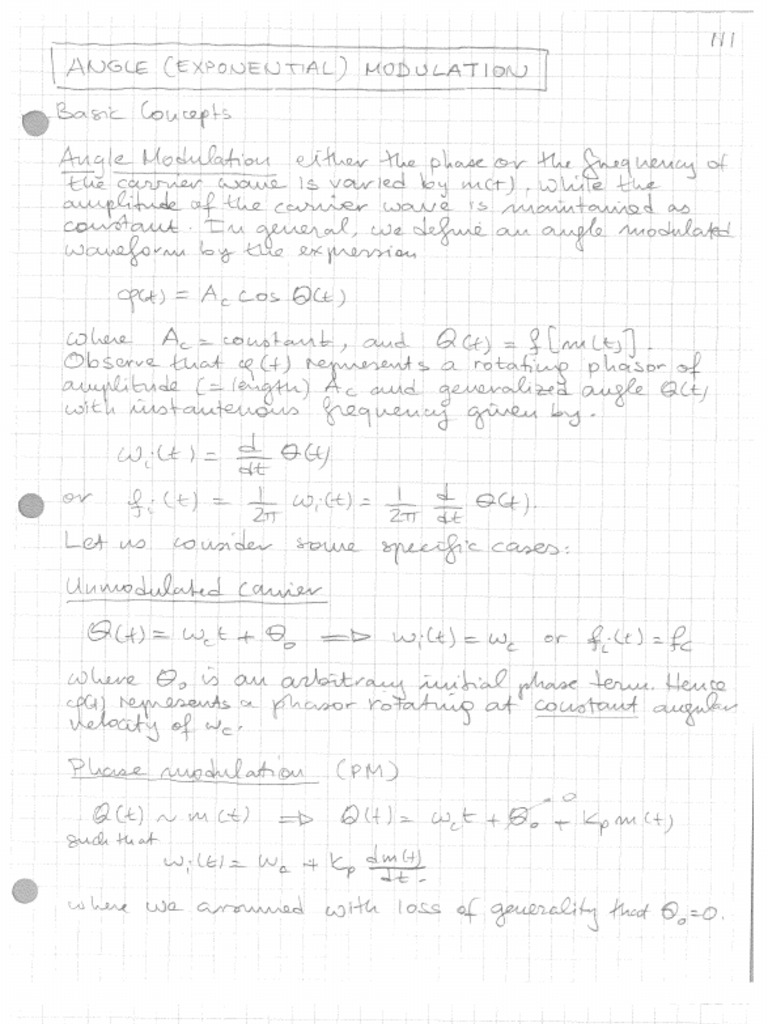 ANGLE (EXPONENTIAL) MODULATION
Basic Concepts
Angle Modulation either the phase or the frequency of
the carrier wave is varied by m(t), while the
amplitude of the carrier wave is maintained as
constant. In general, we define an angle modulated
waveform by the expression
φ(t) = Ac cos Θ(t)
where Ac = constant, and Θ(t) = f[m(t)].
Observe that φ(t) represents a rotating phasor of
amplitude (= length) Ac and generalized angle Θ(t)
with instantenous frequency given by.
ωi(t) = d/dt Θ(t)
or fi(t) = 1/2π ωi(t) = 1/2π d/dt Θ(t).
Let us consider some specific cases:
Unmodulated carrier
Θ(t) = ωct + Θ0 ⇒ ωi(t) = ωc or fi(t) = fc
where Θ0 is an arbitrary initial phase term. Hence
φ(t) represents a phasor rotating at constant angular
velocity of ωc.
Phase modulation (PM)
Θ(t) ~ m(t) ⇒ Θ(t) = ωct + Θ0 + kp m(t)
0
such that
ωi(t) = ωc + kp dm(t)/dt.
where we assumed with loss of generality that Θ0=0.